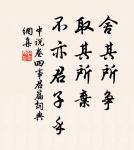 舍其所爭
取其所棄
不亦君子乎
中说卷四事君篇詞典
網集